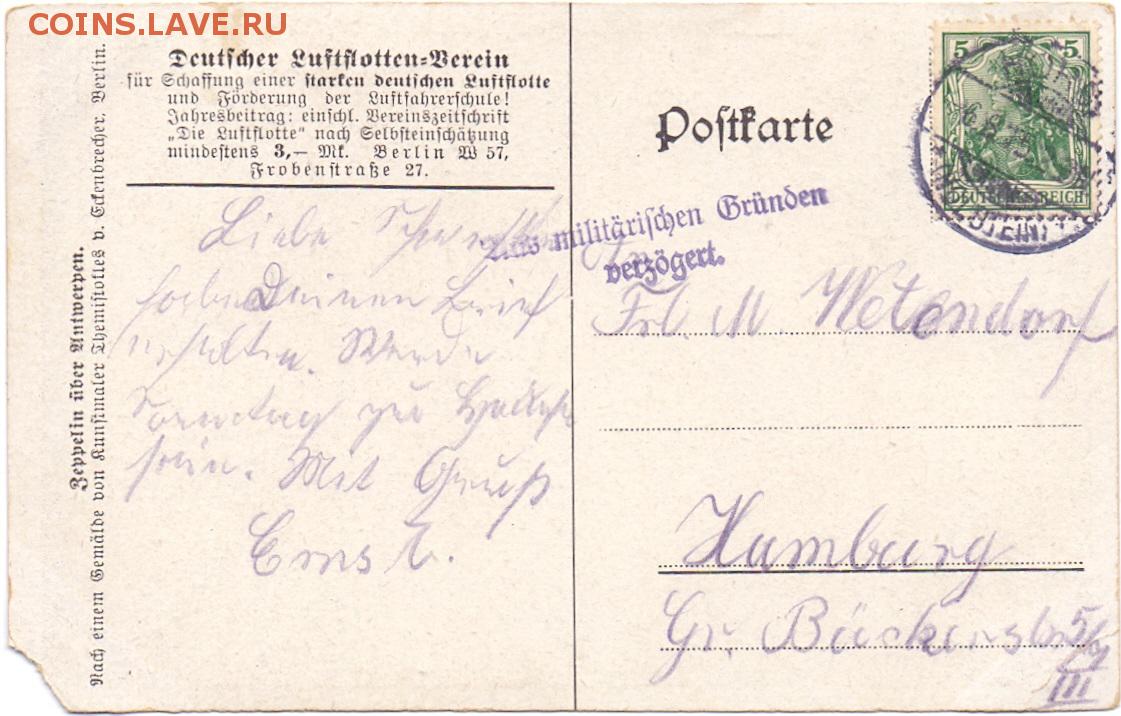 COINS.LAVE.RU
Deutscher Luftflotten-Verein
für Schaffung einer starken deutschen Luftflotte
und Förderung der Luftfahrerschule!
Jahresbeitrag: einschl. Vereinszeitschrift
„Die Luftflotte" nach Selbsteinschätzung
mindestens 3,— Mk. Berlin W 57,
Frobenstraße 27.
Zeppelin über Antwerpen.
Nach einem Gemälde von Kunstmaler Themistokles v. Eckenbrecher, Berlin.
Postkarte
5 5
DEUTSCHES REICH
Aus militärischen Gründen
verzögert.
Liebe
habe Deinen Brief
erhalten. Werde
Sonntag zu Hause
sein. Mit Gruß
Ernst
Frl. M. Wetendorf
Hamburg
Gr. Bäckerstr. 5/9
III